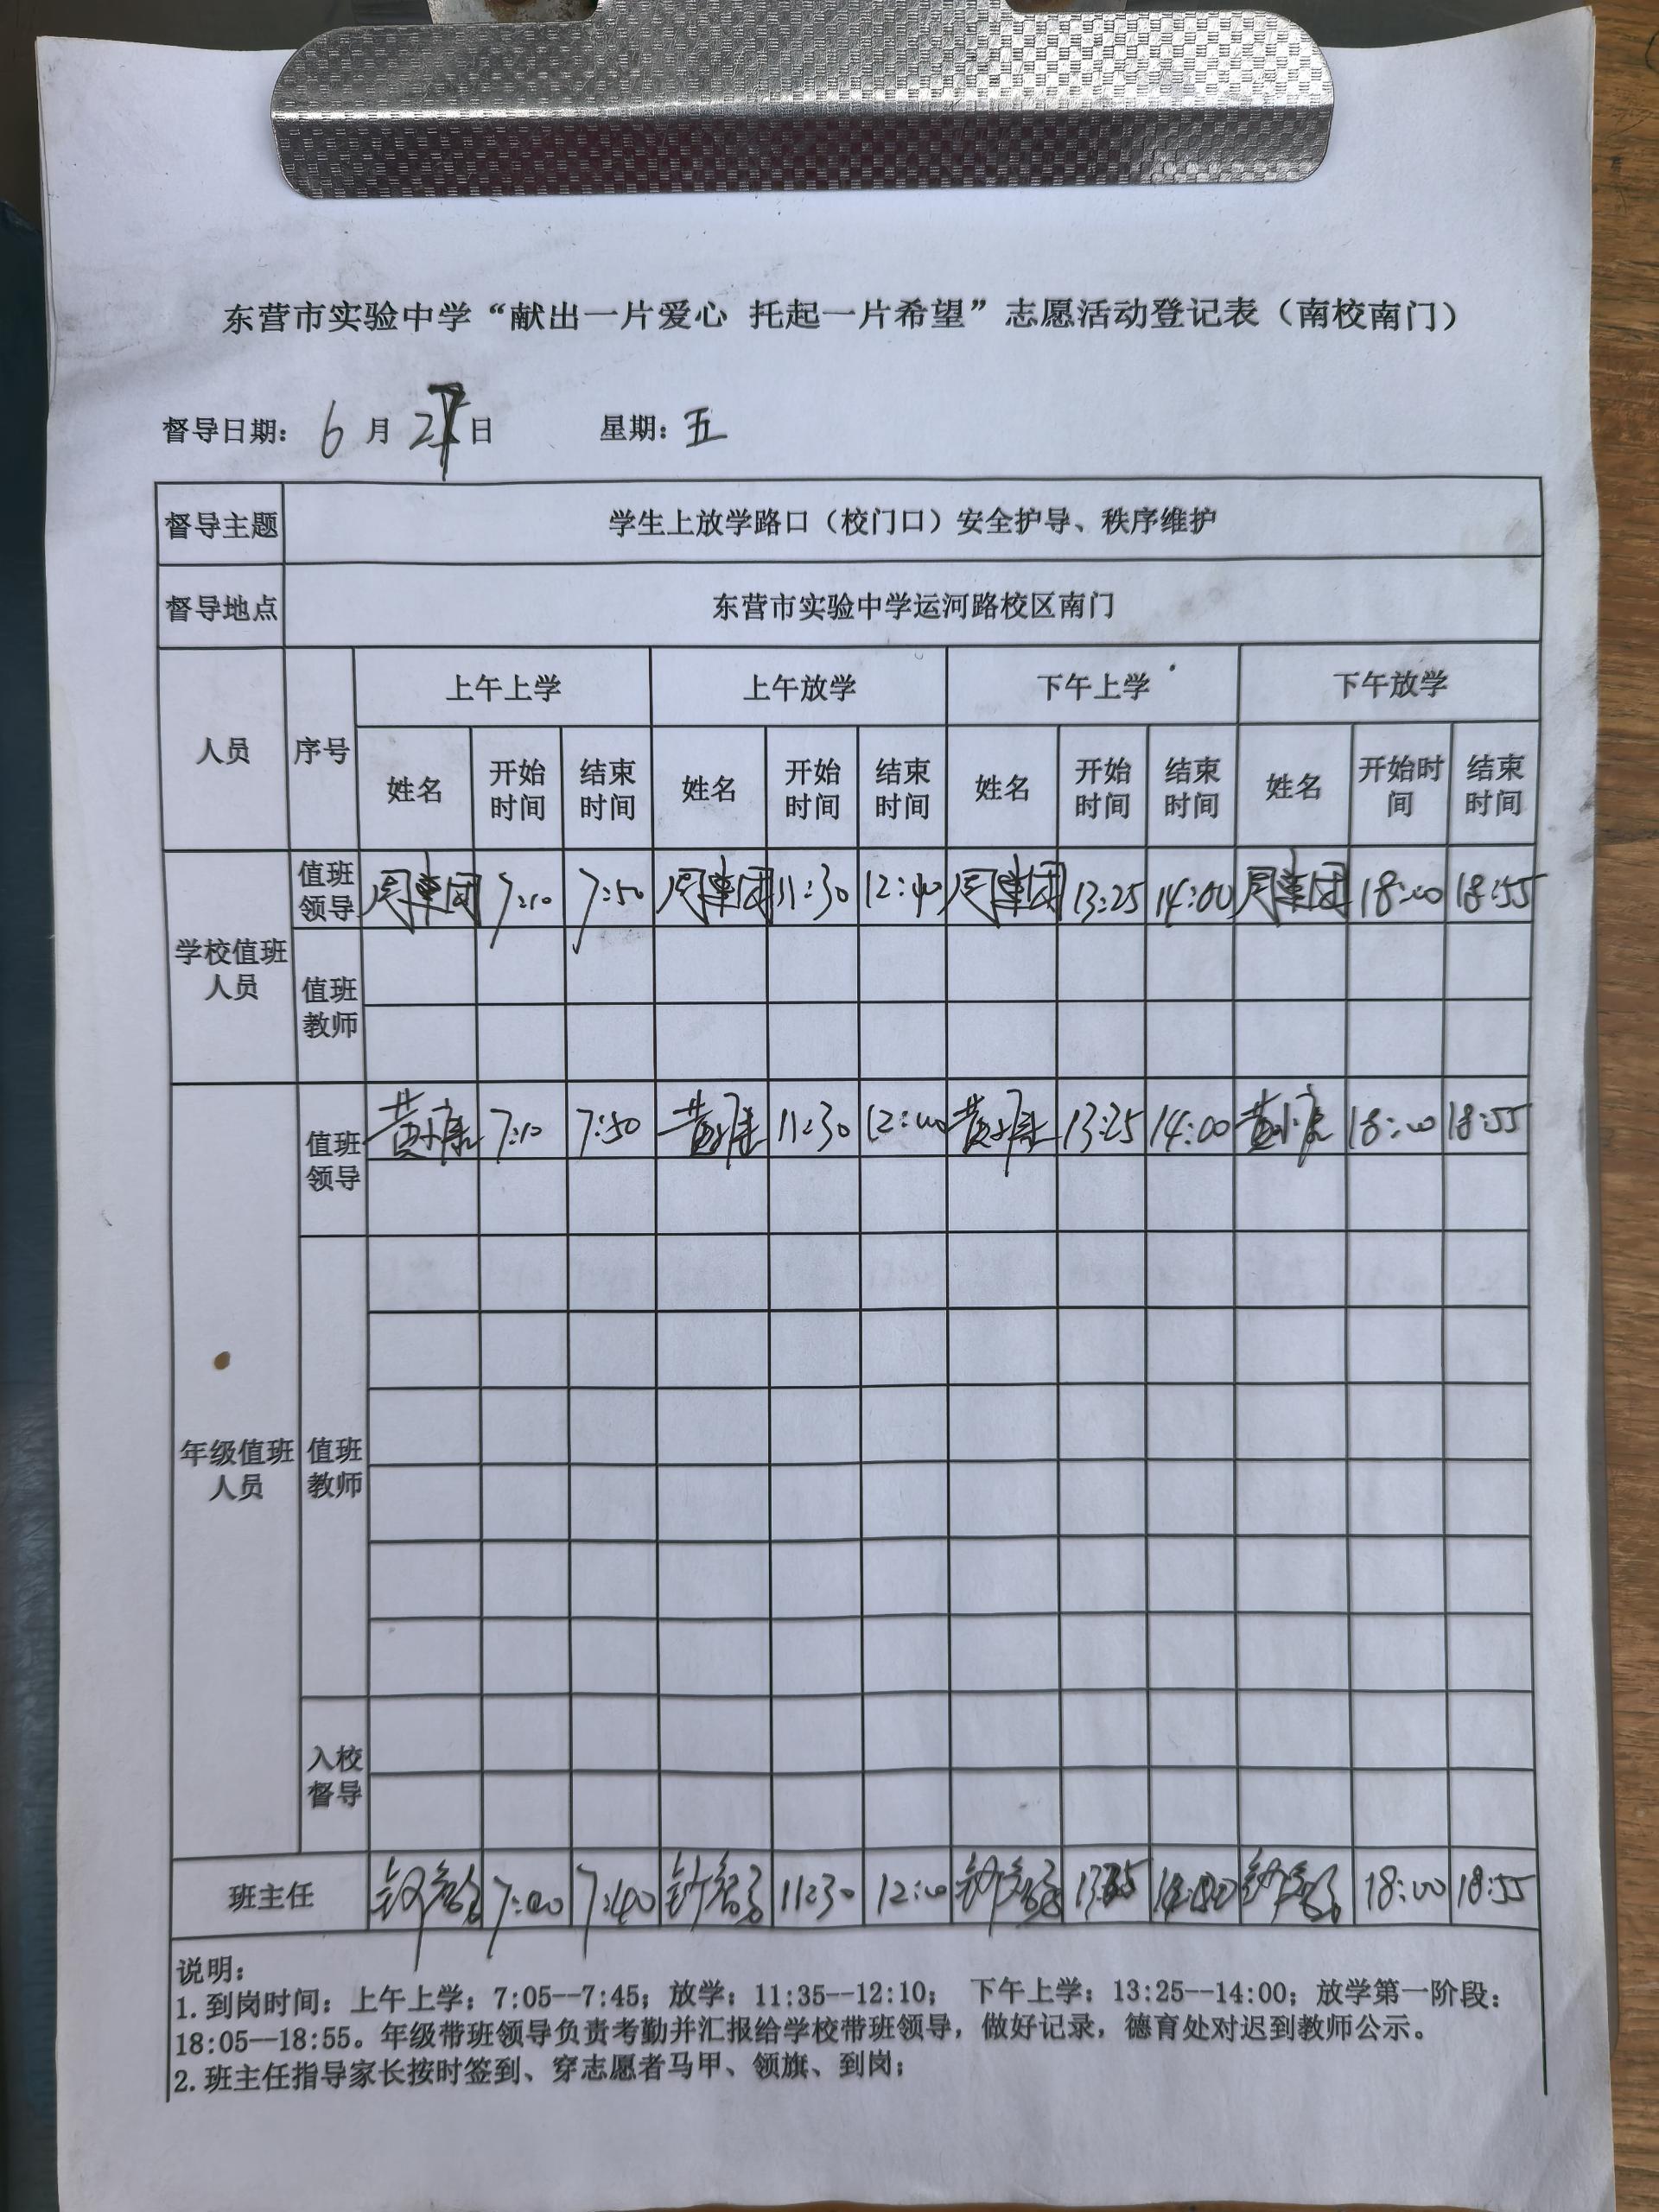 东营市实验中学“献出一片爱心 托起一片希望”志愿活动登记表（南校南门）
督导日期： 6 月 27 日 星期：五
督导主题 学生上放学路口（校门口）安全护导、秩序维护
督导地点 东营市实验中学运河路校区南门
人员 序号 上午上学 上午放学 下午上学 下午放学
姓名 开始时间 结束时间 姓名 开始时间 结束时间 姓名 开始时间 结束时间 姓名 开始时间 结束时间
学校值班人员 值班领导 周 7:10 7:50 周 11:30 12:40 周 13:25 14:00 周 18:00 18:55
值班教师
年级值班人员 值班领导 黄 7:10 7:50 黄 11:30 12:00 黄 13:25 14:00 黄 18:00 18:55
值班教师
入校督导
班主任 7:00 7:40 11:30 12:00 18:00 18:55
说明：
1.到岗时间：上午上学：7:05--7:45；放学：11:35--12:10； 下午上学：13:25--14:00；放学第一阶段：
18:05--18:55。年级带班领导负责考勤并汇报给学校带班领导，做好记录，德育处对迟到教师公示。
2.班主任指导家长按时签到、穿志愿者马甲、领旗、到岗；